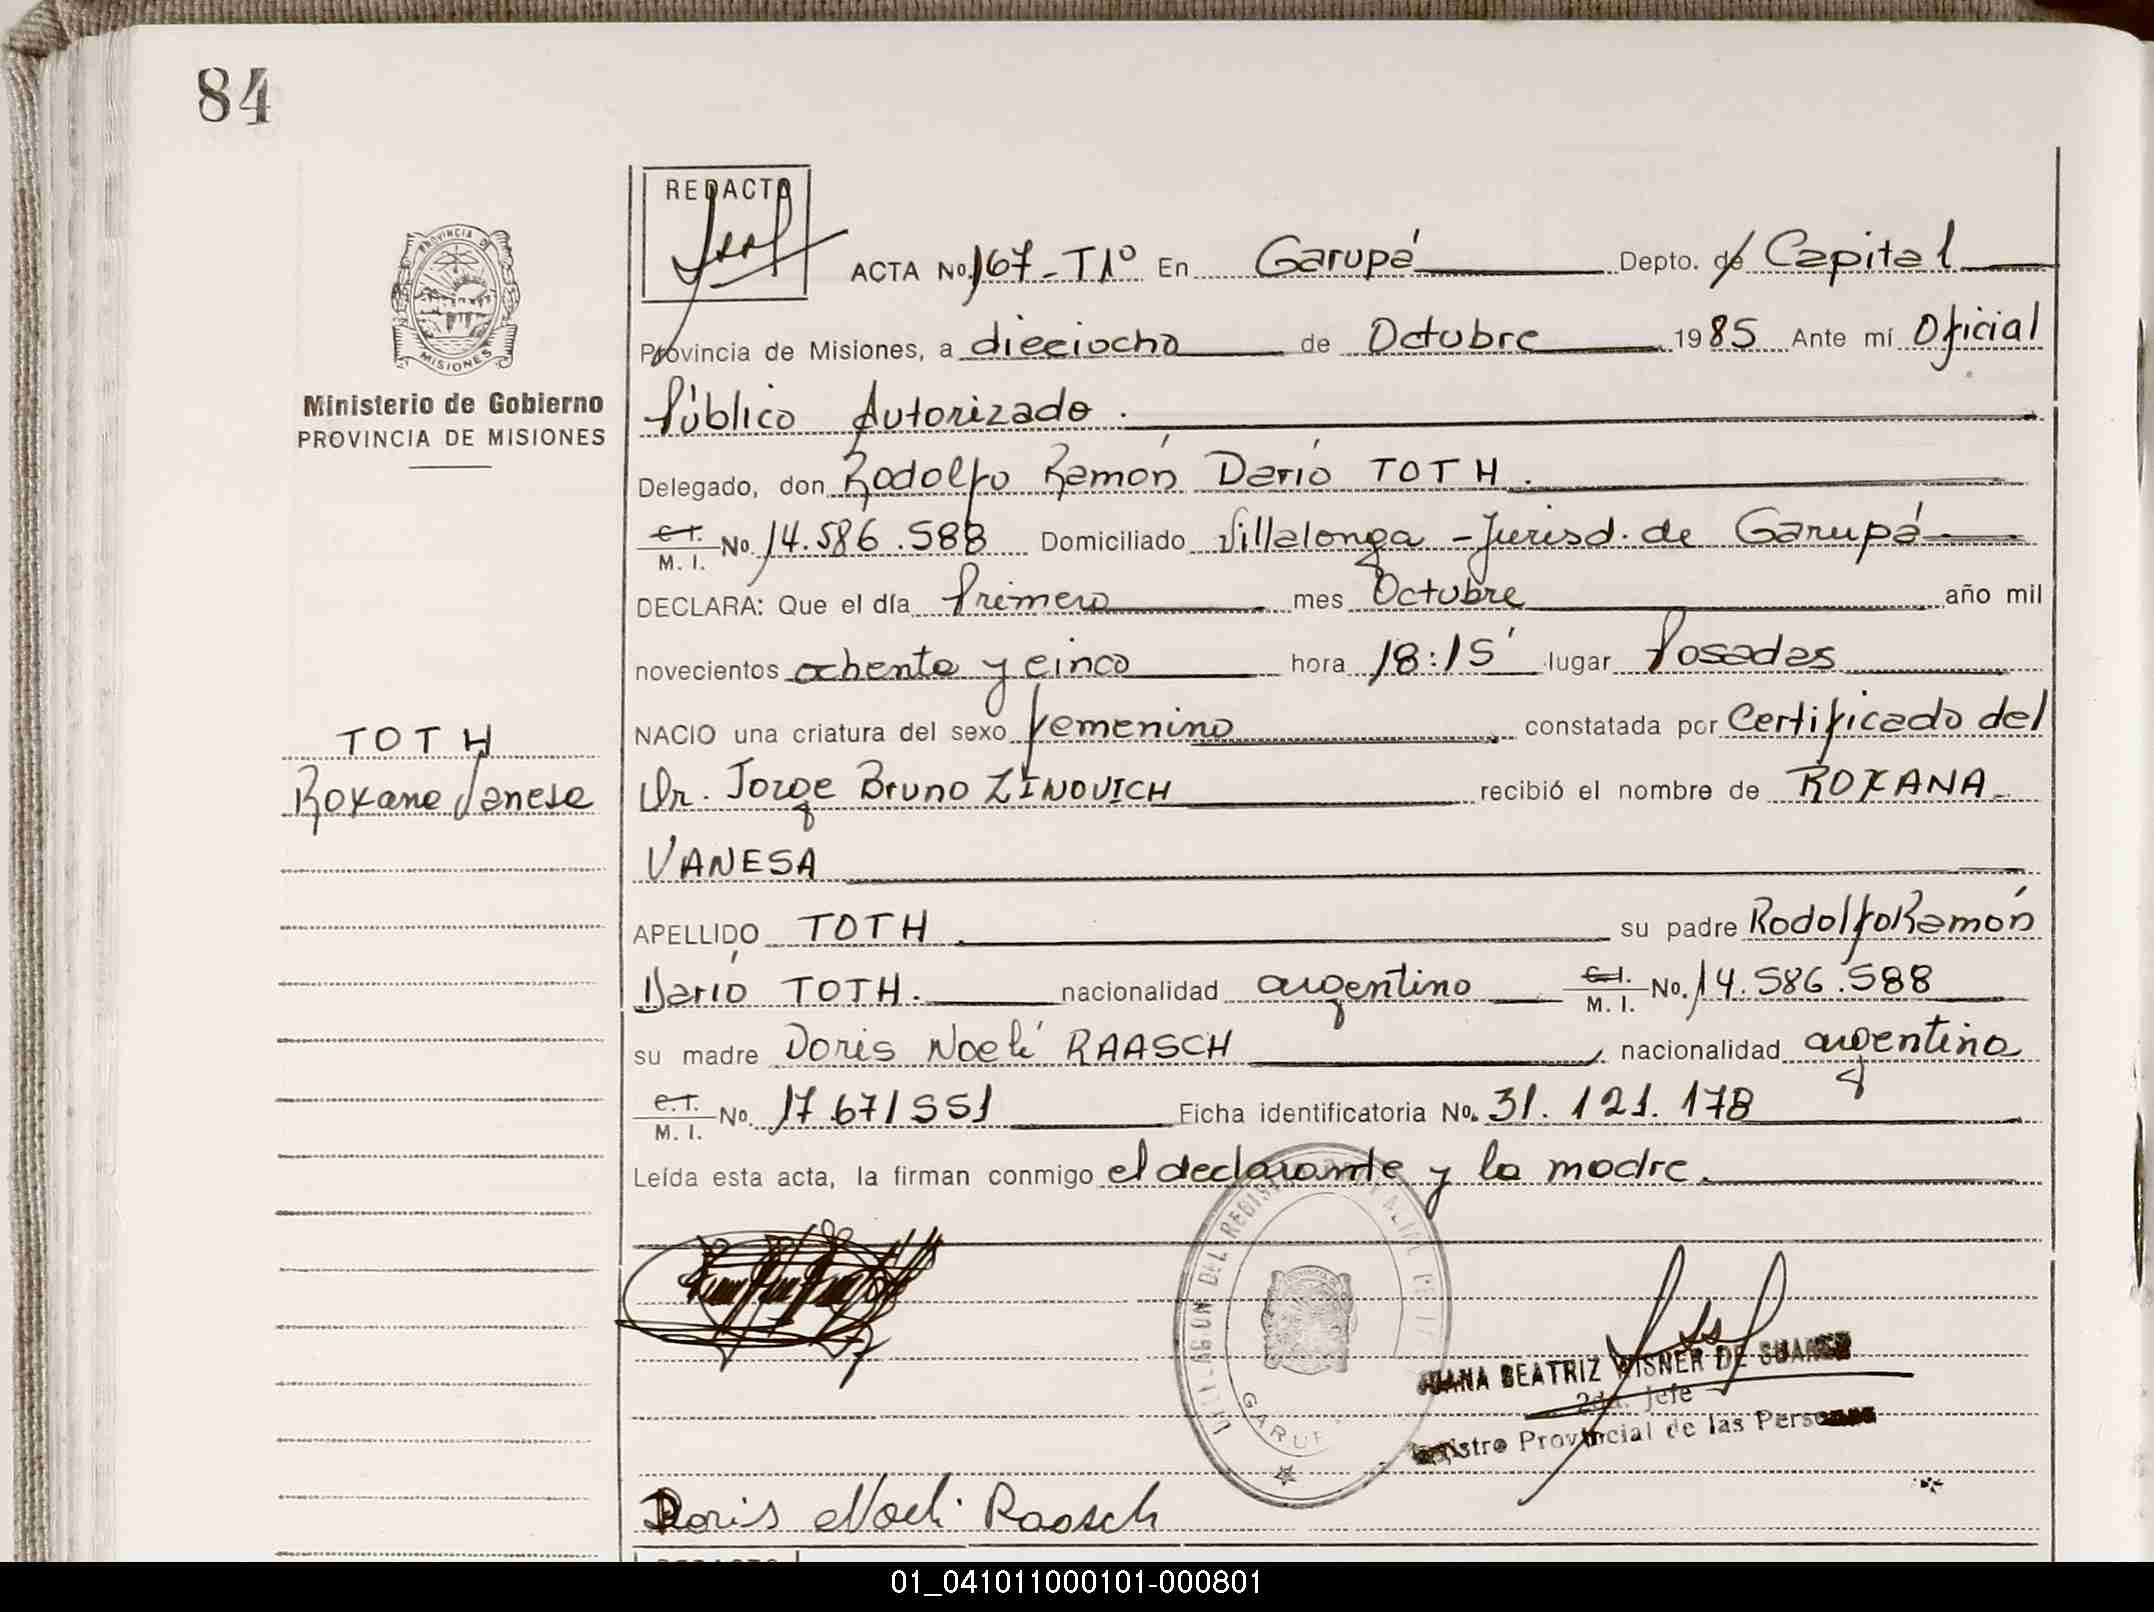 84
REDACTO
PROVINCIA DE
MISIONES
Ministerio de Gobierno
PROVINCIA DE MISIONES
ACTA No. 167 - T1º En Garupá Depto. de Capital
Provincia de Misiones, a dieciocho de Octubre 1985 Ante mí Oficial
Público Autorizado.
Delegado, don Rodolfo Ramón Darío TOTH.
C.I. M. I. No. 14.586.588 Domiciliado Villalonga - Jurisd. de Garupá
DECLARA: Que el día Primero mes Octubre año mil
novecientos ochenta y cinco hora 18:15' lugar Posadas
NACIO una criatura del sexo femenino constatada por Certificado del
TOTH
Roxana Vanesa
Dr. Jorge Bruno ZINOVICH recibió el nombre de ROXANA
VANESA
APELLIDO TOTH su padre Rodolfo Ramón
Darío TOTH. nacionalidad argentino C.I. M. I. No. 14.586.588
su madre Doris Noelí RAASCH nacionalidad argentina
C.I. M. I. No. 17.671551 Ficha identificatoria No. 31.121.178
Leída esta acta, la firman conmigo el declarante y la madre.
JUANA BEATRIZ WISNER DE SUAREZ
2da. Jefe
Registro Provincial de las Personas
Doris Noeli Raasch
01_041011000101-000801